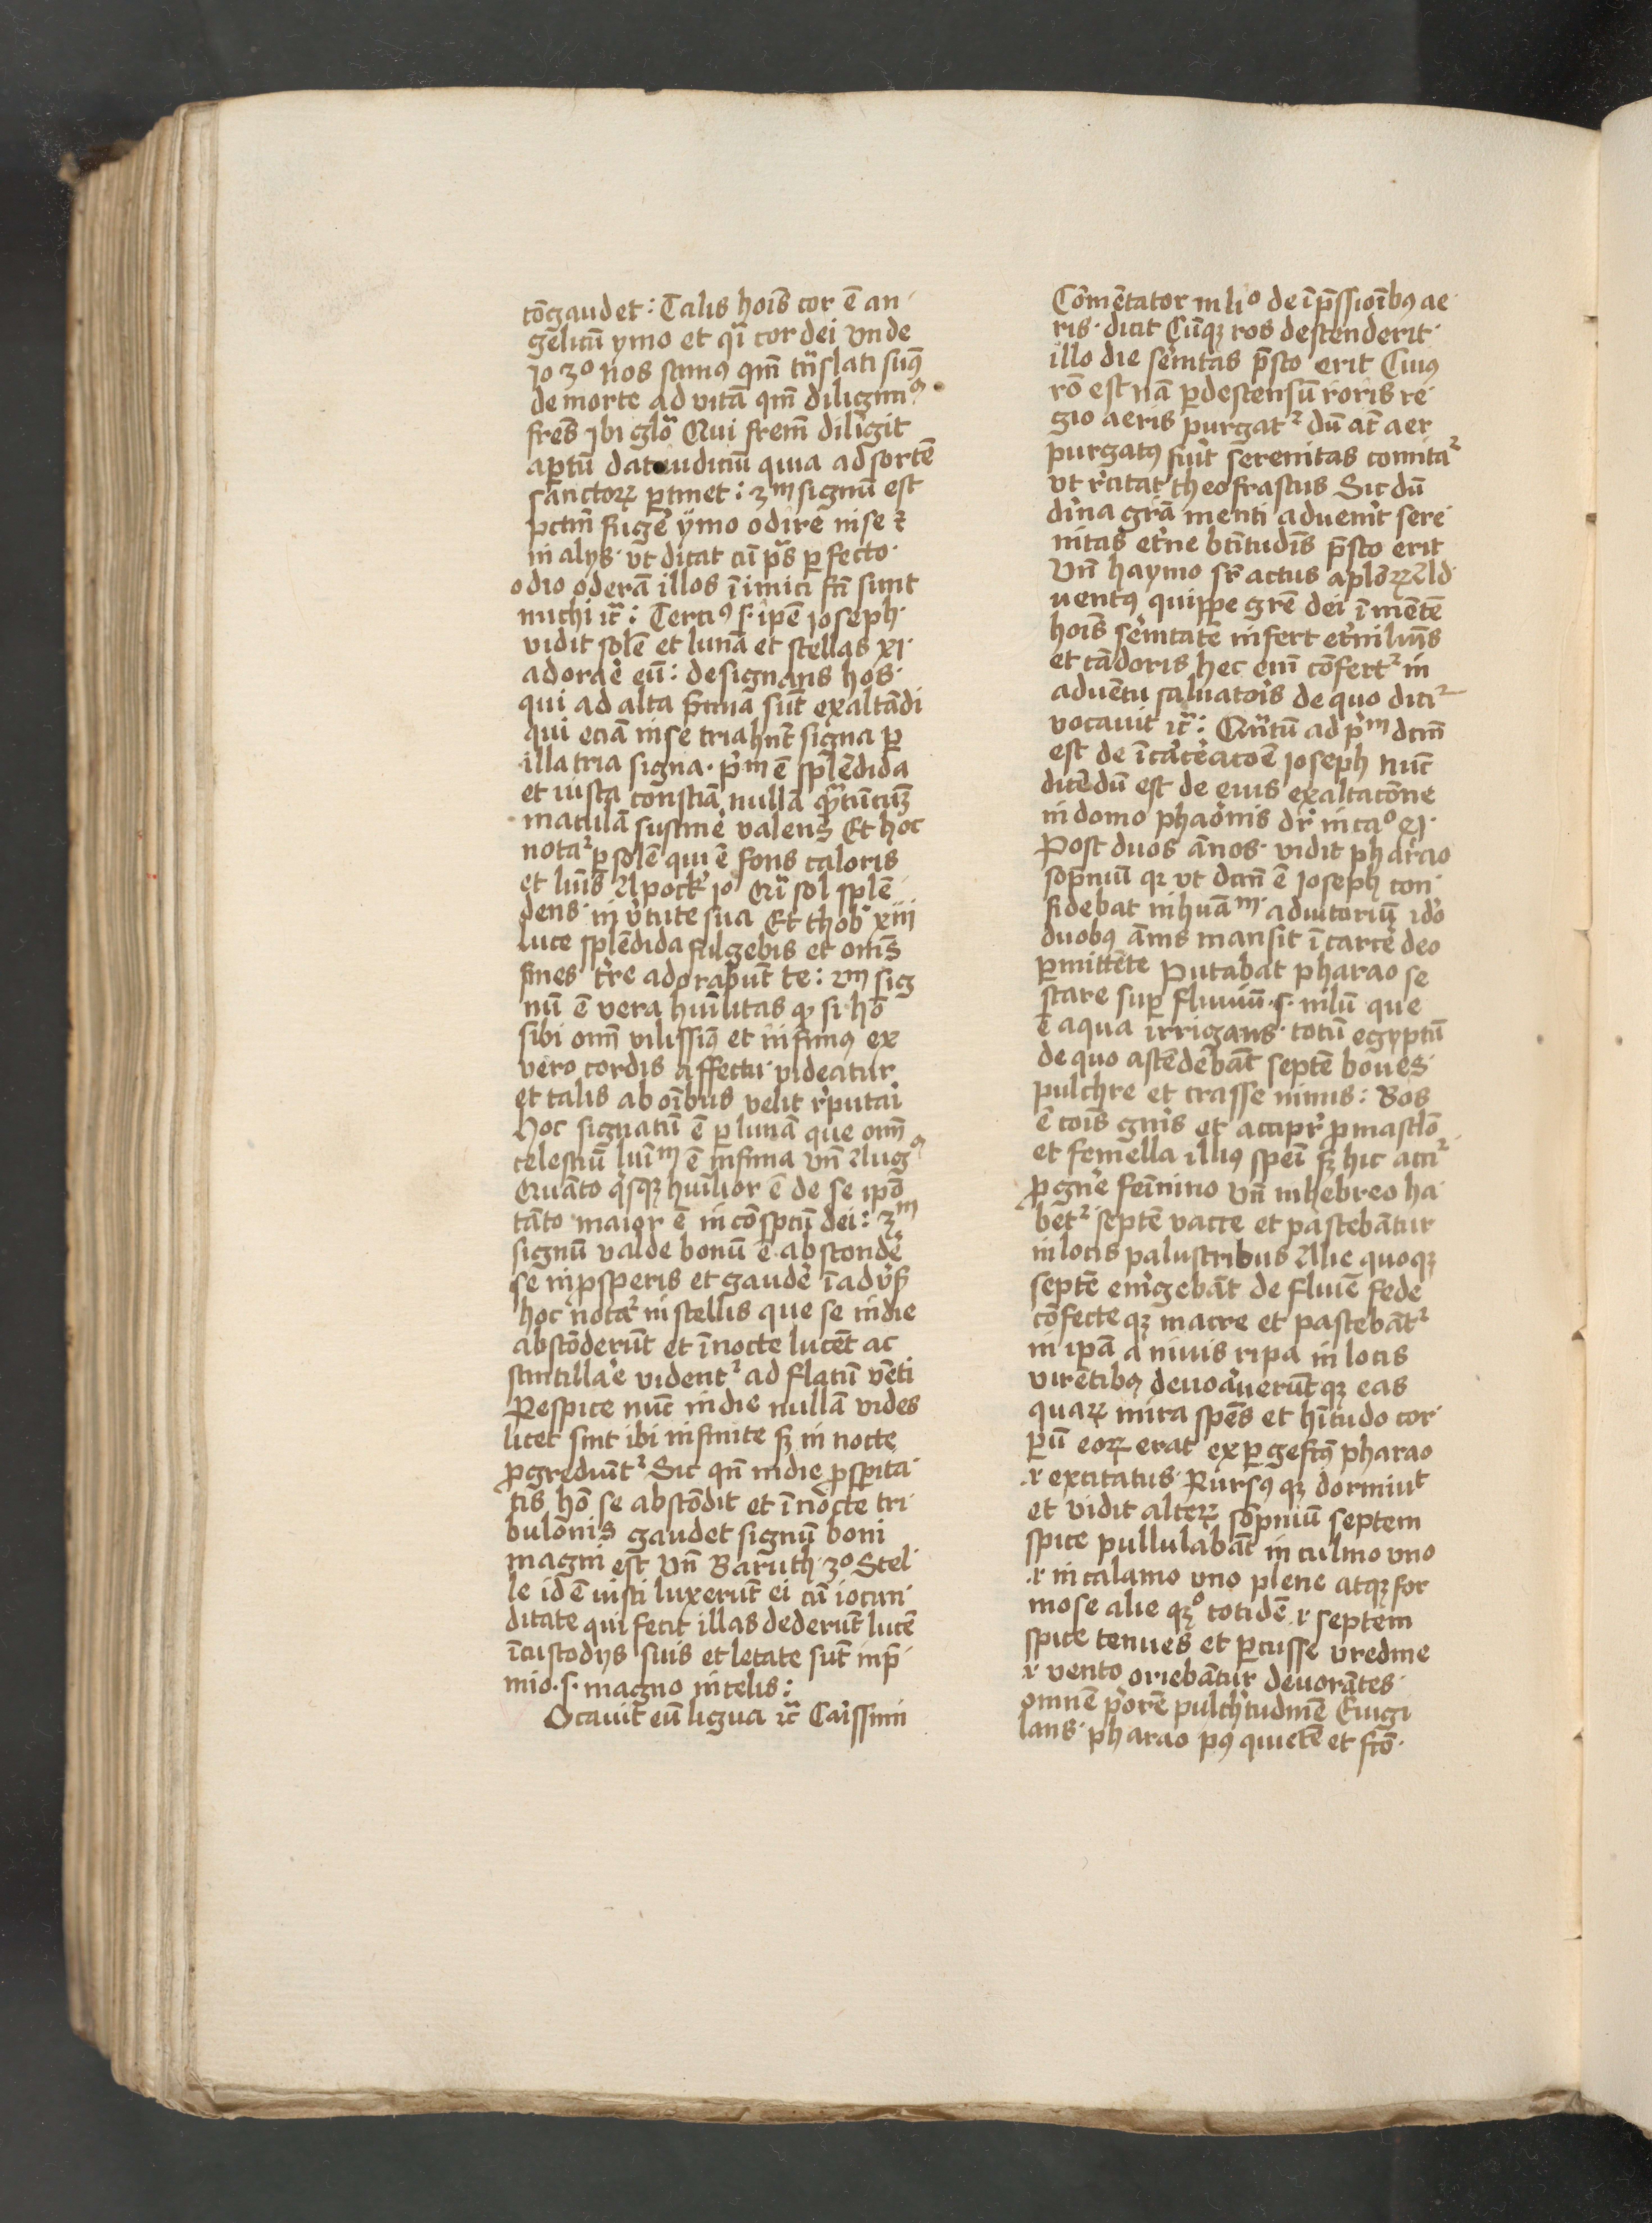 cōgaudet: Talis hoīs cor ē an
gelicū ymo et qī cor dei Vnde
Jo 3º Nos scimꝰ qm̄ trāslati sumꝰ
de morte ad vitā qm̄ diligimꝰ
frēs Ibi glō Qui frem̄ diligit
aptū dat iudiciū quia ad sortē
sanctoꝝ ꝑtinet: 3m signū est
pctm̄ fugē ymo odire in se et
in alijs vt dicat cū ps perfecto
odio oderā illos īimici fcī sunt
michi rc̄: Terciꝰ .s. ipē ioseph
vidit solē et lunā et stellas xi
adorāe eū: designans hos
qui ad alta sūt exaltādi
qui eciā in se triahn̄t signa ꝑ
illa tria signa. pm ē splēdida
et iusta conscīa nullā
maculā sustinē valens Et hoc
notaᵗ ꝑ solē qui ē fons caloris
et lūis Apock io Qī sol splē
dens in vtute sua Et thob xiii
luce splēdida fulgebis et oms
fines tre adorabūt te: 2m sig
nū ē vera huīlitas qꝫ si hō
sibi om̄ vilissimꝰ et infimꝰ ex
vero cordis affectu videatur
et talis ab oībus velit reputai
Hoc signatū ē ꝑ lunā que om̄
celestiū luīm ē infima Vn̄ Augꝰ
Quāto qsqꝫ huīlior ē de se ipō
tāto maior ē in cōspctū dei: 3m
signū valde bonū ē abscondē
se in ꝓsperis et gaudē ī advs
hoc notaᵗ in stellis que se in die
abscōderūt et ī nocte lucēt ac
scintillāe videntᵗ ad flatū vēti
Respice nūc in die nullā vides
licet sint ibi infinite sꝫ in nocte
ꝓgrediūtᵗ Sic qn̄ in die ꝓspita
tis hō se abscōdit et ī nocte tri
bulōnis gaudet signū boni
magni est Vn̄ Baruth 3º Stel
le id ē iusti luxerūt ei cū iocun
ditate qui fecit illas dederūt lucē
ī custodijs suis et letate sūt in p̄
mio .s. magno in celis:
Ocauit eū ligua rc̄ Caissimi
Cōmētator in liº de īp̄ssioībꝰ ae
ris dicit Cūqꝫ ros descenderit
illo die seīntas p̄sto erit Cuiꝰ
rō est nā ꝑ descensū roris re
gio aeris purgatᵗ dū at̄ aer
purgatꝰ fuit serenitas comitaᵗ
vt rcitat theofrastus Sic dū
dīna grā menti aduenīt sere
nitas etne btītudīs p̄sto erit
Vn̄ haymo sr̄ actus aplōꝝ Ad
uentꝰ quippe grē dei ī mētē
hoīs seīntatē infert etni lūis
et cādoris hec enī cōfertᵗ in
aduētu saluatois de quo diciᵗ
vocauit rc̄: Qūtū ad pm dcm̄
est de īcaceacōe ioseph nūc
dicēdū est de eius exaltacōne
in domo phaonis dr̄ in caº
Post duos ānos vidit pharao
sōpniū qꝫ vt dcm̄ ē Joseph con
fidebat in huām adiutoriū ido
duobꝰ ānis mansit ī carcē deo
ꝑmittēte Putabat pharao se
stare sup fluuiū .s. nilū que
ē aqua irrigans totū egyptū
de quo ascēdebāt septē boues
pulchre et crasse nimis: Bos
ē cois gnis et accipr ꝓ masclō
et femella illiꝰ spei sꝫ hic acciᵗ
ꝓ gnē feīnino Vn̄ in hebreo ha
betᵗ septē vacce et pascebātur
in locis palustribus Alie quoqꝫ
septē emgebāt de fluīe fede
cōfecte qꝫ macre et pascebātᵗ
in ipā aninis ripa in locis
virētibꝰ deuoauerūt qꝫ eas
quaꝝ mira spēs et hītudo cor
ꝑū eoꝝ erat exꝑgefctꝰ pharao
.i. excitatus Rursꝰ qꝫ dormiut
et vidit alteꝝ sōpniū septem
spice pullulabāt in culmo vno
.i. in calamo vno plene atqꝫ for
mose alie qꝫº totidē .i. septem
spice tenues et ꝑcusse vredine
.i. vento oriebātur deuorātes
omnē piorē pulchtudinē Euigi
lans pharao pꝰ quietē et fcō